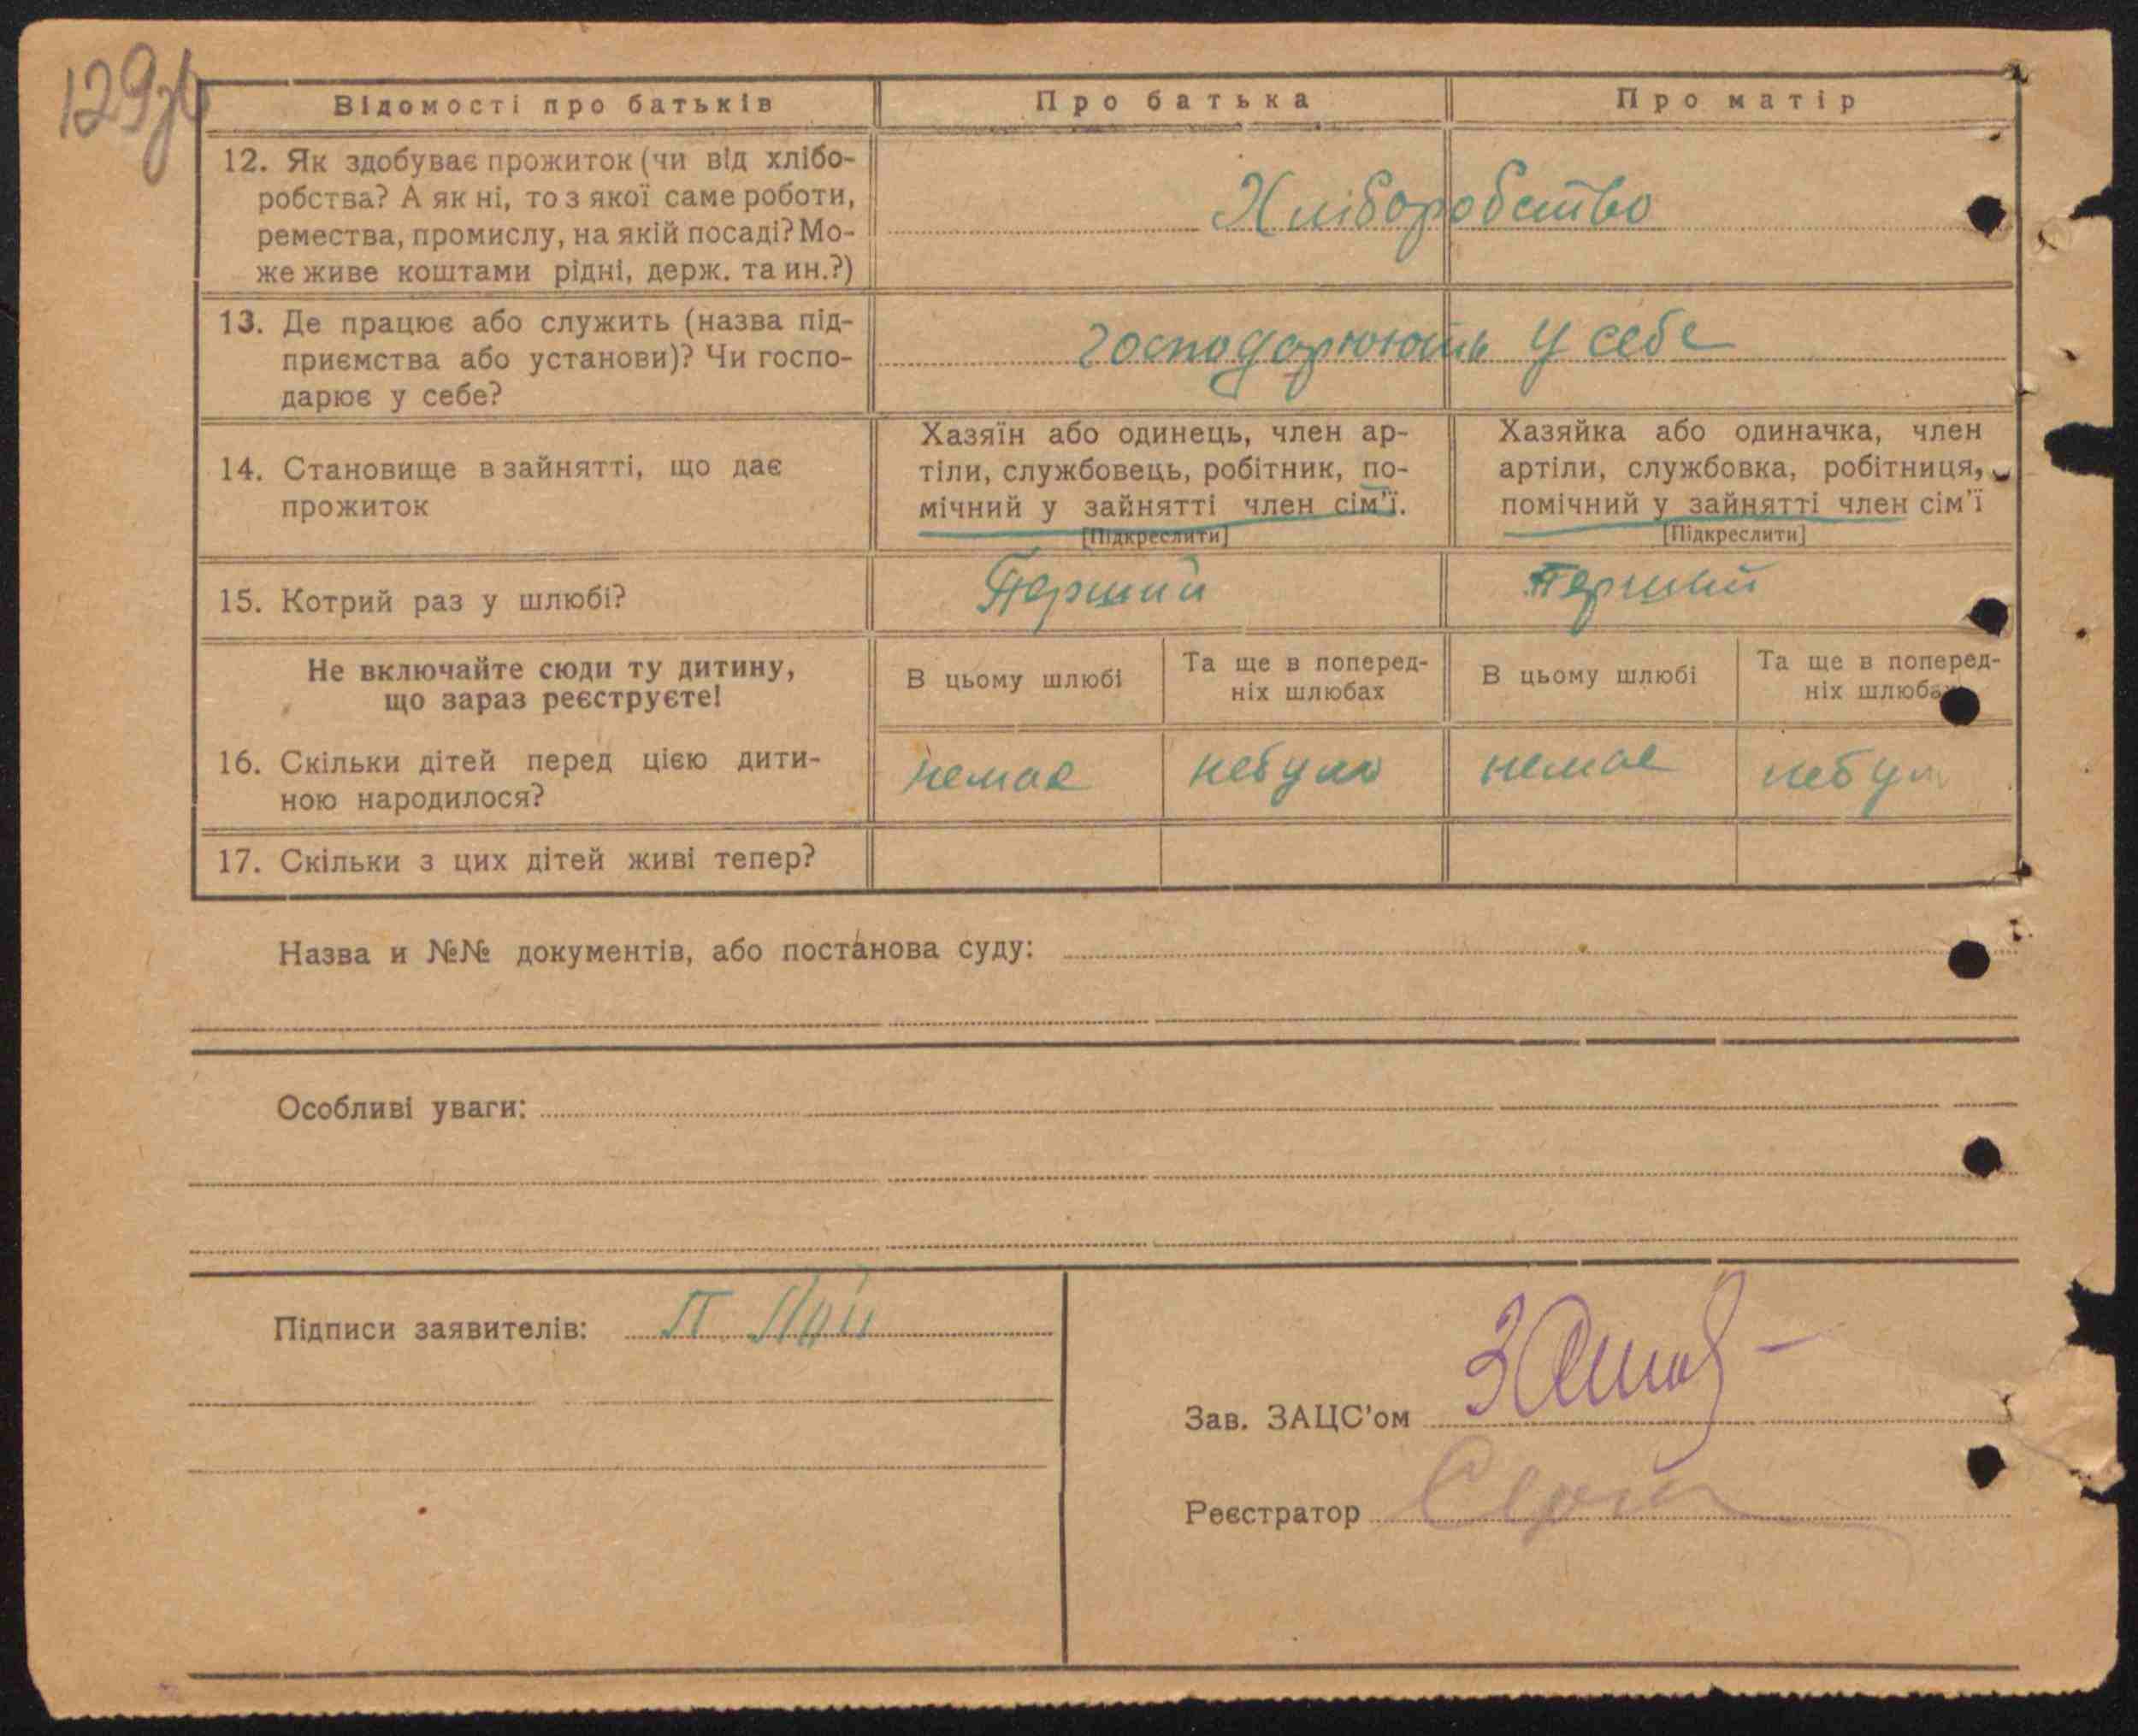 129зв
Відомості про батьків
Про батька
Про матір
12. Як здобуває прожиток (чи від хлібо-
робства? А як ні, то з якої саме роботи,
ремества, промислу, на якій посаді? Мо-
же живе коштами рідні, держ. та ин.?)
Хліборобство
13. Де працює або служить (назва під-
приємства або установи)? Чи госпо-
дарює у себе?
господарюють у себе
14. Становище в зайнятті, що дає
прожиток
Хазяїн або одинець, член ар-
тіли, службовець, робітник, по-
мічний у зайнятті член сім'ї.
[Підкреслити]
Хазяйка або одиначка, член
артіли, службовка, робітниця,
помічний у зайнятті член сім'ї
[Підкреслити]
15. Котрий раз у шлюбі?
Перший
перший
Не включайте сюди ту дитину,
що зараз реєструєте!
В цьому шлюбі
Та ще в поперед-
ніх шлюбах
В цьому шлюбі
Та ще в поперед-
ніх шлюбах
16. Скільки дітей перед цією дити-
ною народилося?
немає
небуло
немає
небул
17. Скільки з цих дітей живі тепер?
Назва и №№ документів, або постанова суду:
Особливі уваги:
Підписи заявителів:
П
Зав. ЗАЦС'ом
Реєстратор